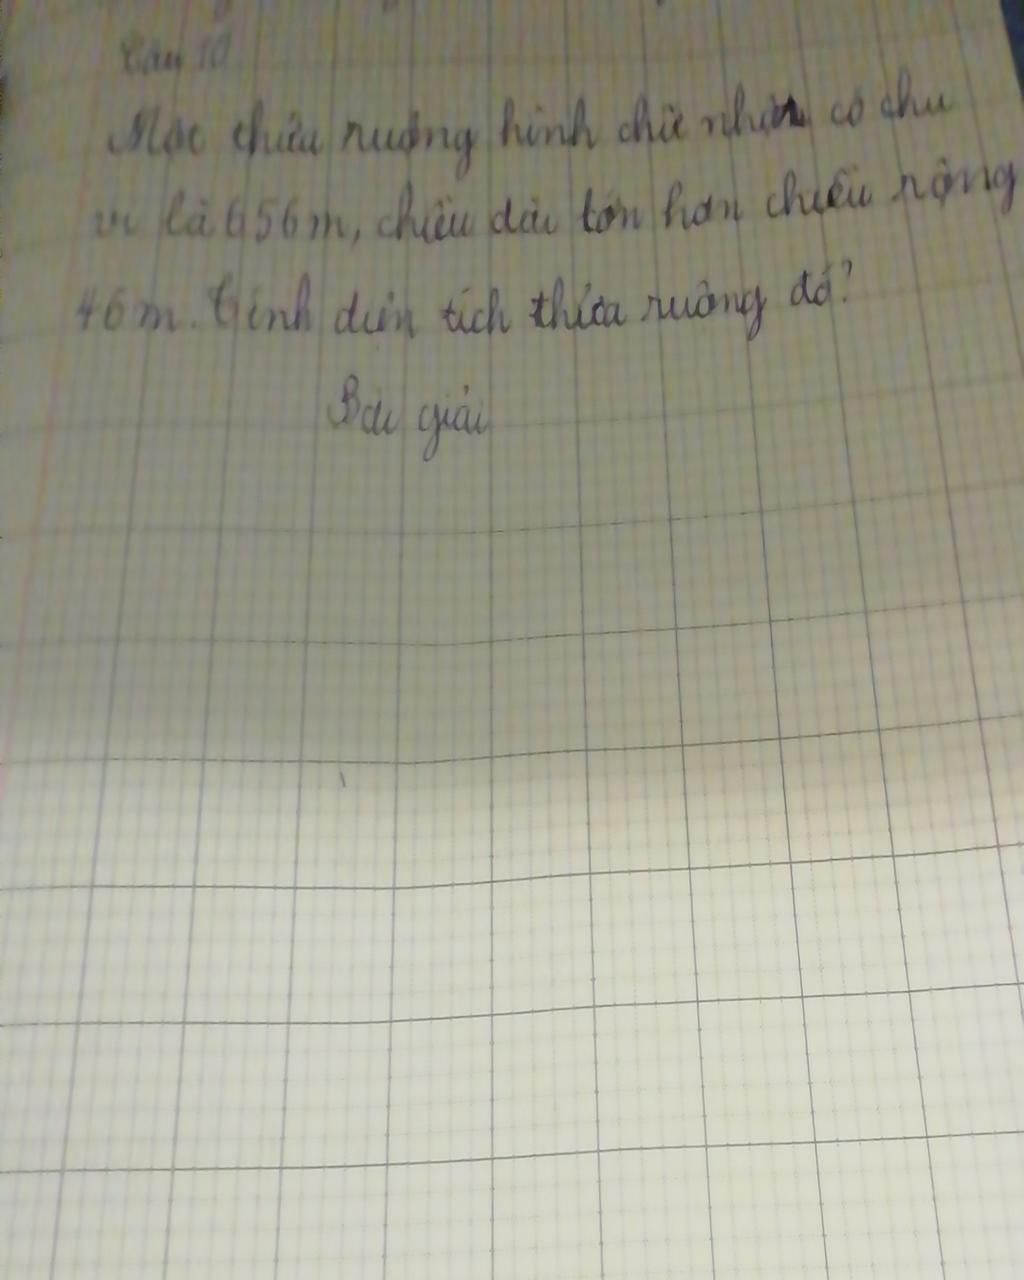 Câu 10
Một thửa ruộng hình chữ nhật có chu
vi là 656m, chiều dài lớn hơn chiều rộng
46m. Tính diện tích thửa ruộng đó?
Bài giải